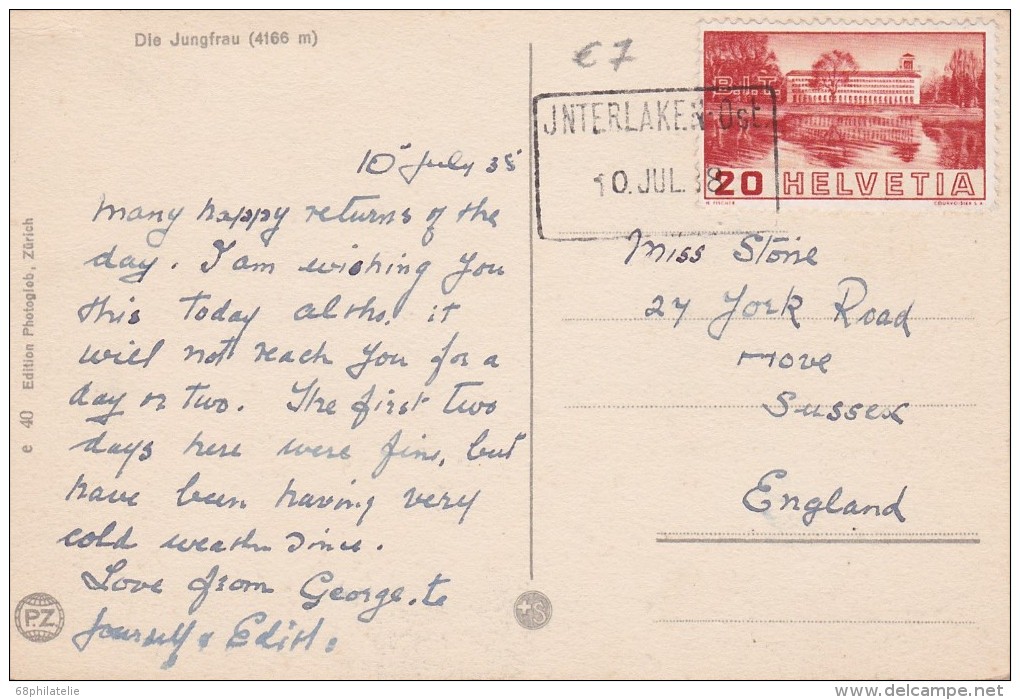 Die Jungfrau (4166 m)
€7
JNTERLAKEN Ost
10.JUL.38
B.I.T
20 HELVETIA
COURVOISIER S.A.
10 July 38
Many happy returns of the
day. I am wishing you
this today altho. it
will not reach you for a
day or two. The first two
days here were fine, but
have been having very
cold weather since.
Love from George. to
yourself & Edith.
Miss Stone
27 York Road
Hove
Sussex
England
e 40 Edition Photoglob, Zürich
P.Z.
+S
68philatelie
delcampe.net